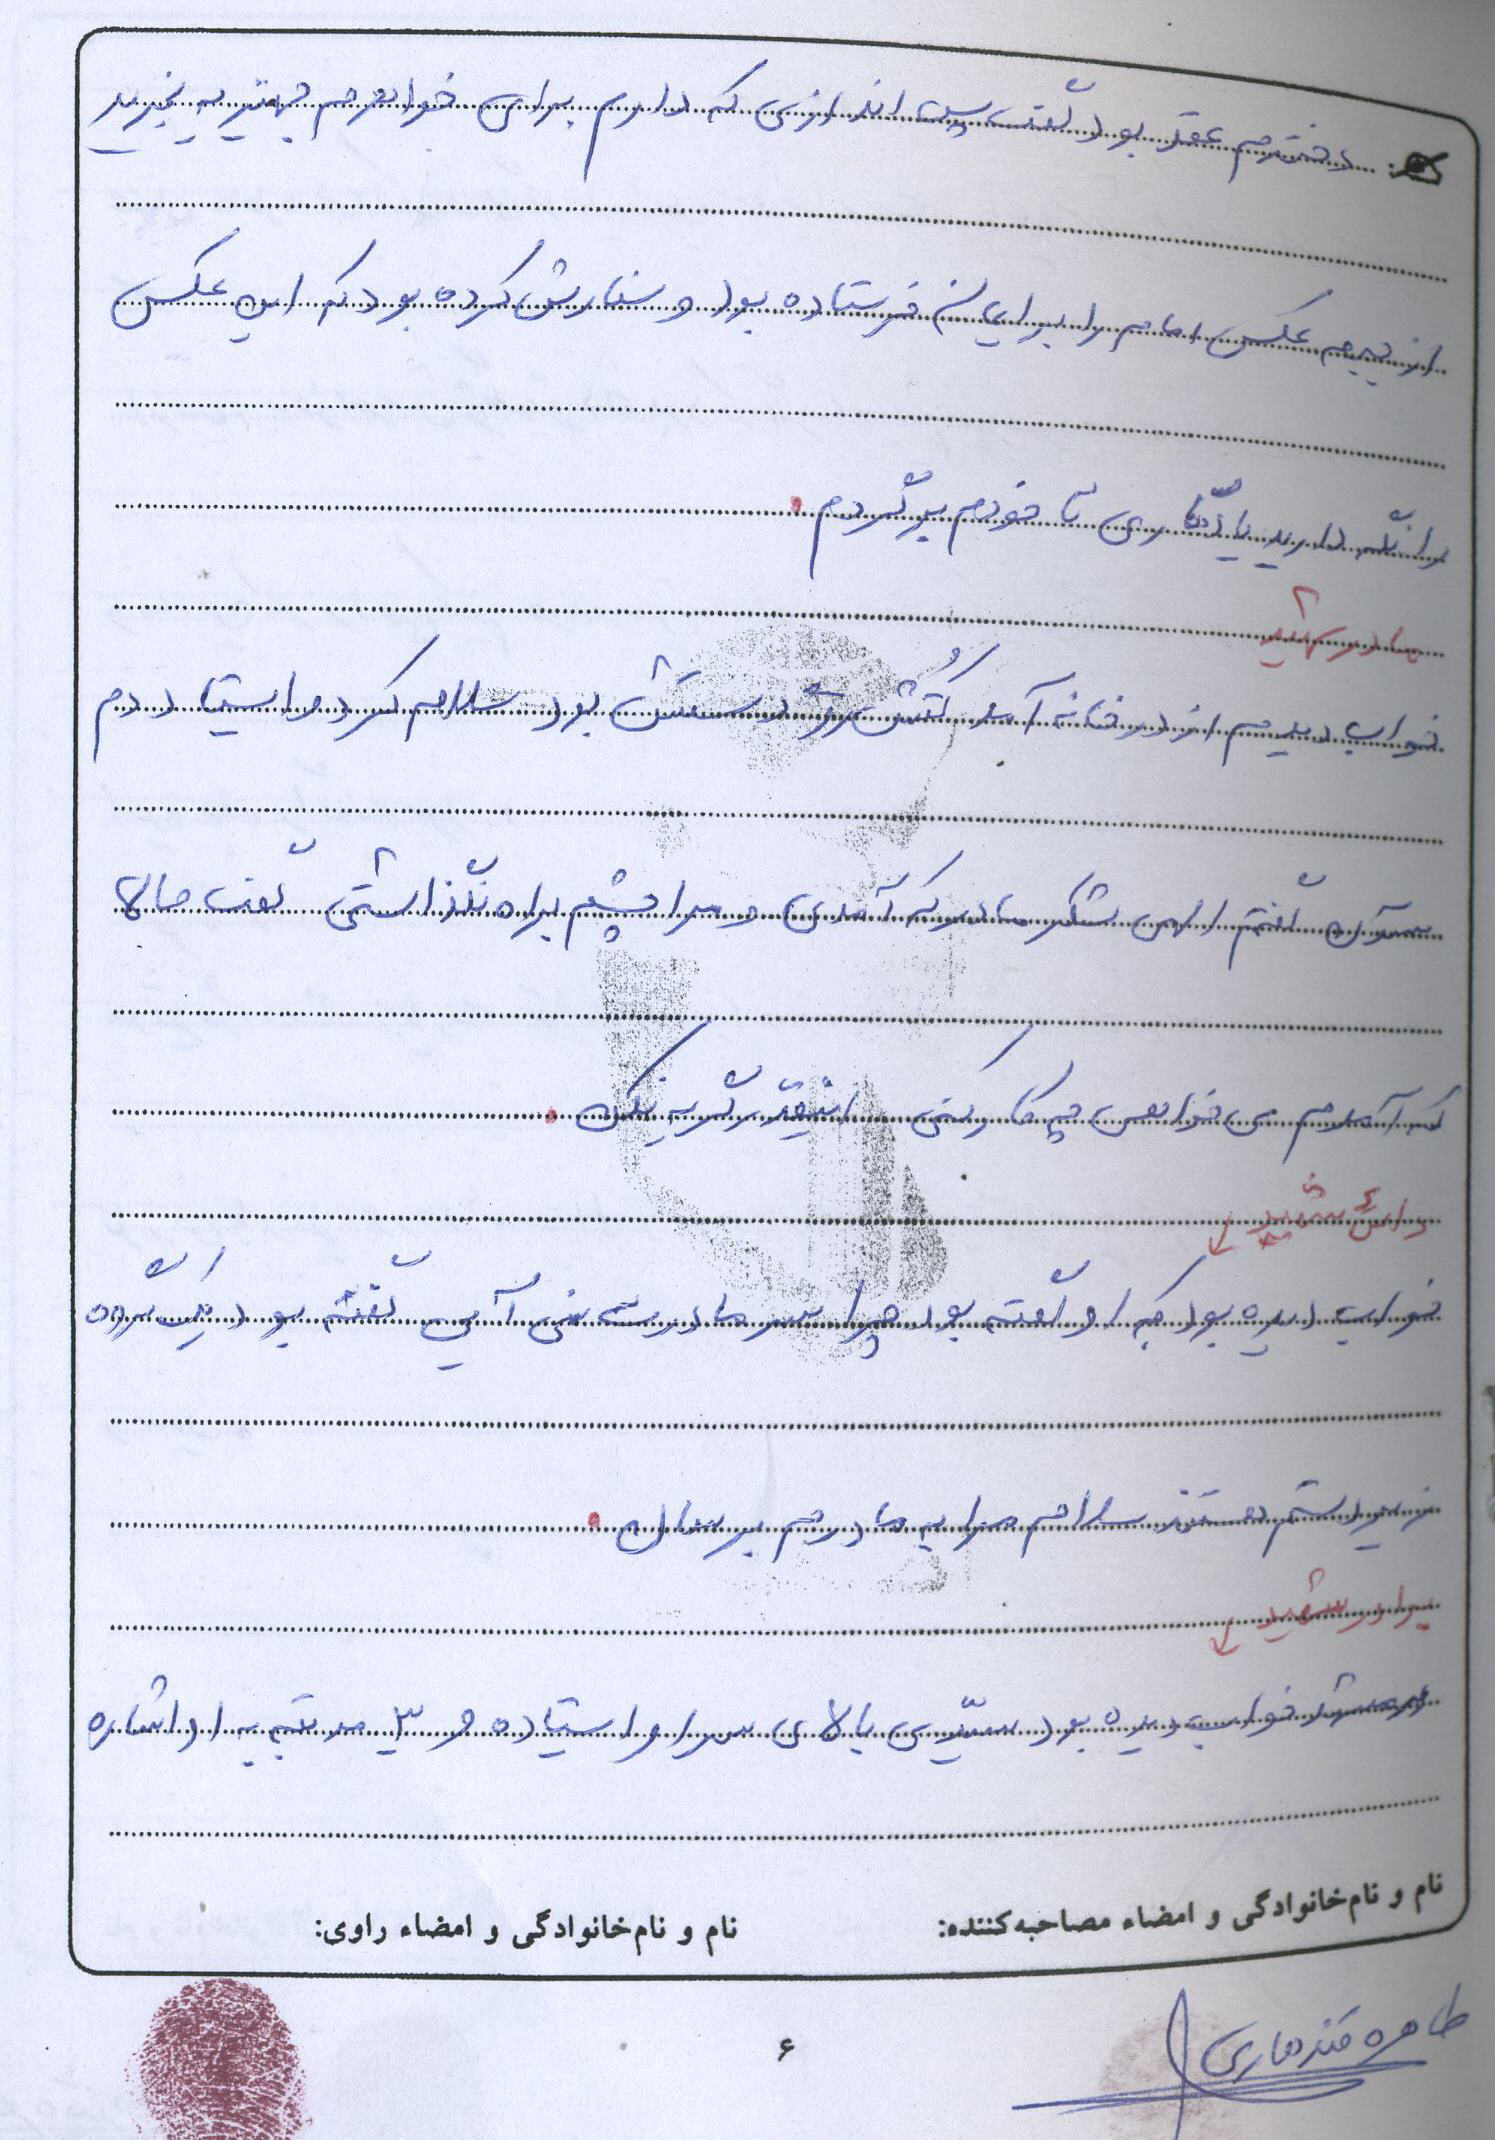 دخترم عقد بود گفت پس اندازی که دارم برای خواهرم جهیزیه بخرید
از جبهه عکس امام را برایمان فرستاده بود و سفارش کرده بود که این عکس
را نگه دارید یادگاری تا خودم برگردم.
مادر شهید
خواب دیدم از در خانه آمد کُتش رو دستش بود سلام کرد و ایستاد دم
ستون گفتم الهی شکر مادر که آمدی و مرا چشم براه نگذاشتی گفت حالا
که آمدم می خواهی چه کار کنی انیقدر گریه نکن.
دائی شهید
خواب دیده بود که او گفته بود چرا سر مادرت نمی آیی گفته بود
زیر دستم هستند سلام مرا به مادرم برسان.
برادر شهید
خواب دیده بود سیّدی بالای سر او ایستاده و ۳ مرتبه به او اشاره
نام و نام‌خانوادگی و امضاء مصاحبه‌کننده:
نام و نام‌خانوادگی و امضاء راوی:
طاهره قندهاری
۶